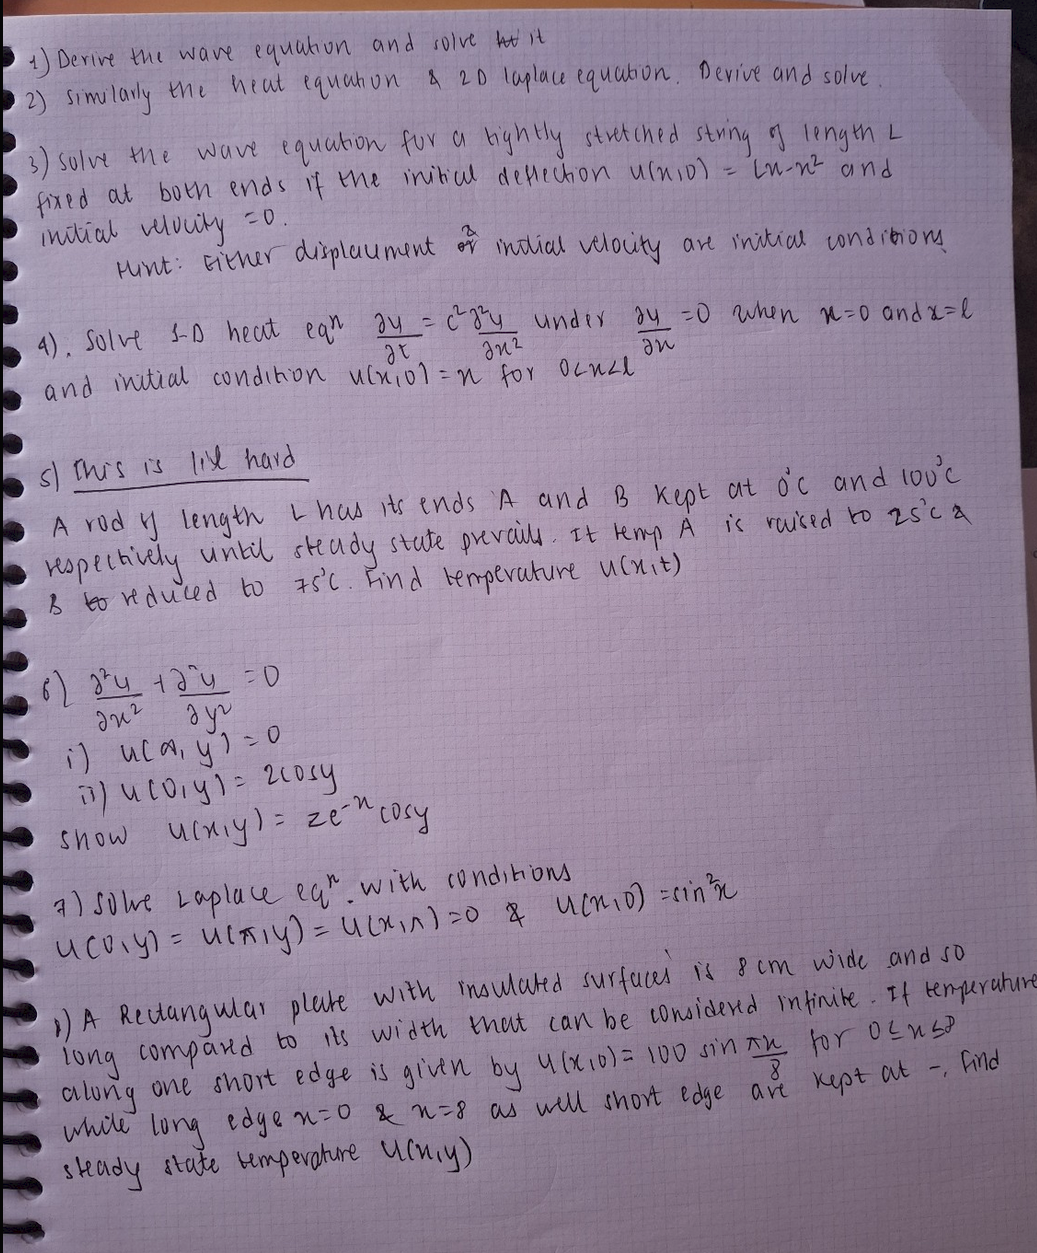 1) Derive the wave equation and solve it
2) Similarly the heat equation & 2D laplace equation. Derive and solve.
3) Solve the wave equation for a tightly stretched string of length L
fixed at both ends if the initial deflection u(x,0) = Lx-x² and
initial velocity =0.
Hint: Either displacment & initial velocity are initial conditions
4). Solve 1-D heat eqⁿ ∂u/∂t = c²∂²u/∂x² under ∂u/∂x =0 when x=0 and x=l
and initial condition u(x,0) = x for 0<x<l
5) This is lil hard
A rod of length L has its ends A and B kept at 0°C and 100°C
respectively until steady state prevails. It temp A is raised to 25°C &
B reduced to 75°C. Find temperature u(x,t)
6) ∂²u/∂x² + ∂²u/∂y² =0
i) u(∞, y) = 0
ii) u(0,y) = 2cosy
Show u(x,y) = 2e⁻ˣ cosy
7) Solve Laplace eqⁿ. with conditions
u(0,y) = u(π,y) = u(x,π) =0 & u(x,0) =sin²x
8) A Rectangular plate with insulated surfaces is 8 cm wide and so
long compared to its width that can be considered infinite. If temperature
along one short edge is given by u(x,0)= 100 sin πx/8 for 0≤x≤8
while long edge x=0 & x=8 as well short edge are kept at -, Find
steady state temperature u(x,y)